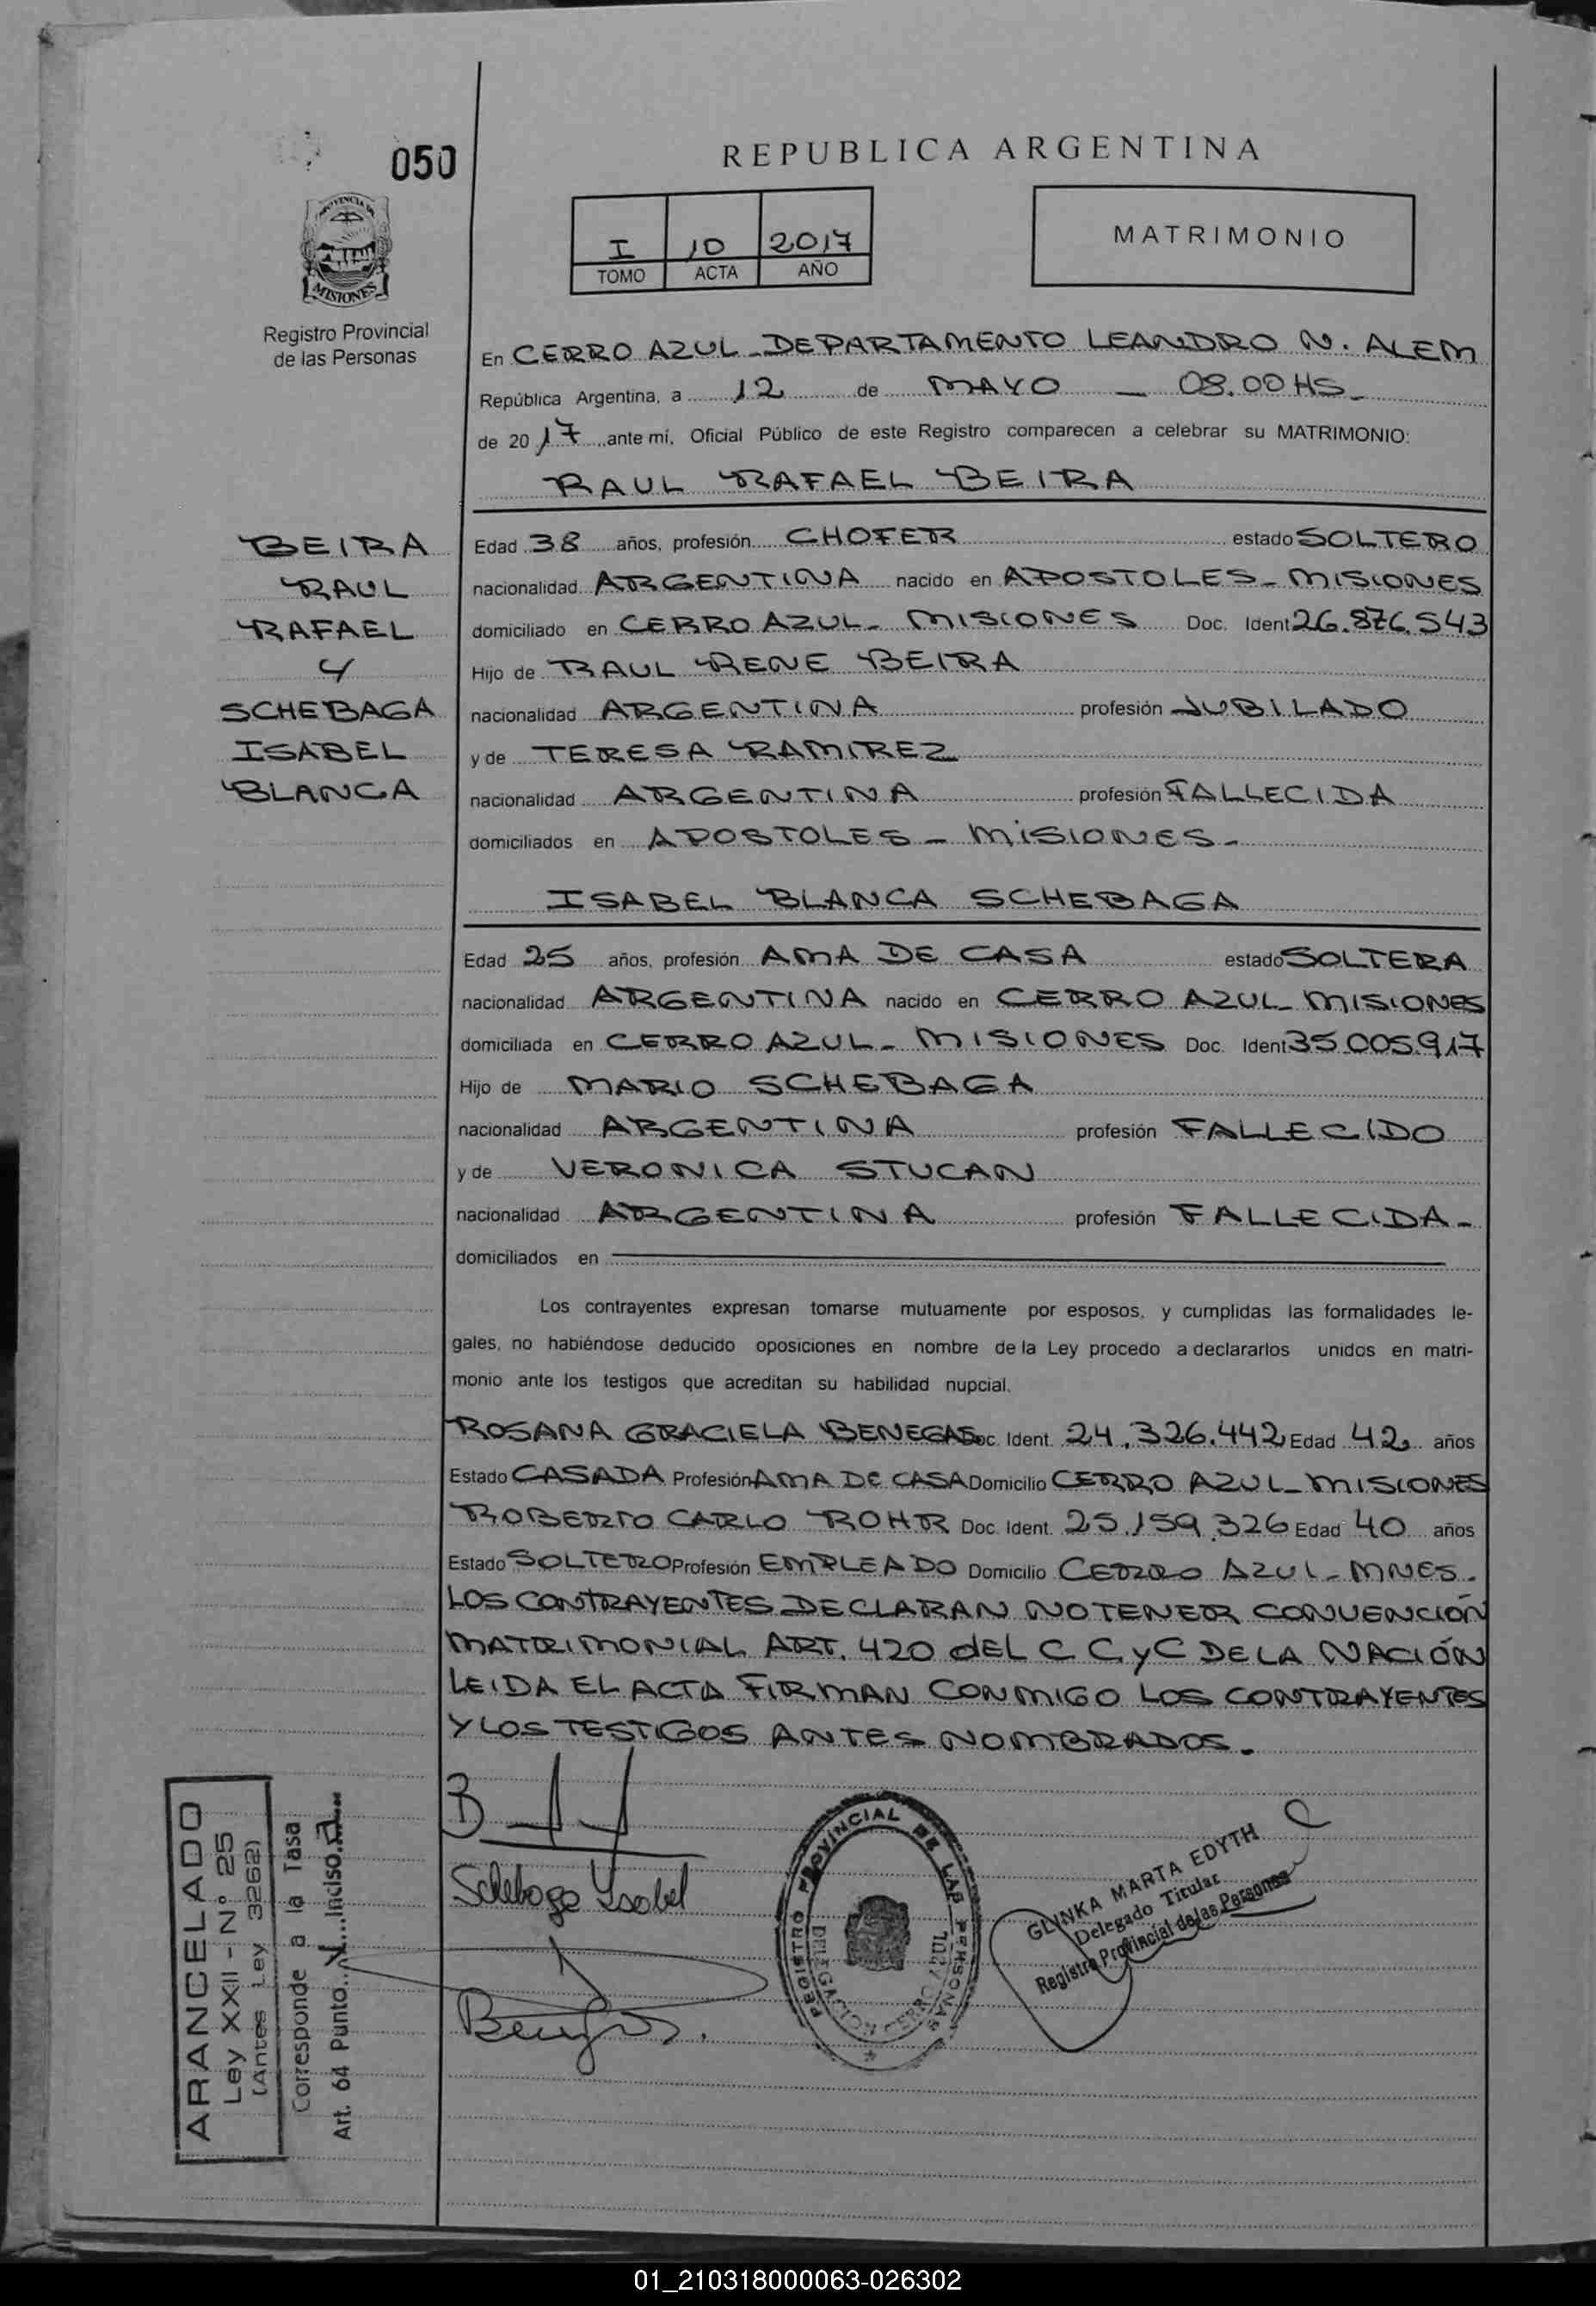 050
REPUBLICA ARGENTINA
I 10 2017
TOMO ACTA AÑO
MATRIMONIO
PROVINCIA DE
MISIONES
Registro Provincial
de las Personas
En CERRO AZUL - DEPARTAMENTO LEANDRO N. ALEM
República Argentina, a 12 de MAYO — 08.00 HS -
de 20 17 ante mí, Oficial Público de este Registro comparecen a celebrar su MATRIMONIO:
RAUL RAFAEL BEIRA
BEIRA
RAUL
RAFAEL
Y
SCHEBAGA
ISABEL
BLANCA
Edad 38 años, profesión CHOFER estado SOLTERO
nacionalidad ARGENTINA nacido en APOSTOLES - MISIONES
domiciliado en CERRO AZUL - MISIONES Doc. Ident 26.876.543
Hijo de RAUL RENE BEIRA
nacionalidad ARGENTINA profesión JUBILADO
y de TERESA RAMIREZ
nacionalidad ARGENTINA profesión FALLECIDA
domiciliados en APOSTOLES - MISIONES -
ISABEL BLANCA SCHEBAGA
Edad 25 años, profesión AMA DE CASA estado SOLTERA
nacionalidad ARGENTINA nacido en CERRO AZUL - MISIONES
domiciliada en CERRO AZUL - MISIONES Doc. Ident 35.005.917
Hijo de MARIO SCHEBAGA
nacionalidad ARGENTINA profesión FALLECIDO
y de VERONICA STUCAN
nacionalidad ARGENTINA profesión FALLECIDA -
domiciliados en
Los contrayentes expresan tomarse mutuamente por esposos, y cumplidas las formalidades le-
gales, no habiéndose deducido oposiciones en nombre de la Ley procedo a declararlos unidos en matri-
monio ante los testigos que acreditan su habilidad nupcial.
ROSANA GRACIELA BENEGAS Doc. Ident. 24.326.442 Edad 42 años
Estado CASADA Profesión AMA DE CASA Domicilio CERRO AZUL - MISIONES
ROBERTO CARLO ROHR Doc. Ident. 25.159.326 Edad 40 años
Estado SOLTERO Profesión EMPLEADO Domicilio CERRO AZUL - MNES -
LOS CONTRAYENTES DECLARAN NO TENER CONVENCIÓN
MATRIMONIAL ART. 420 dEL C C y C DE LA NACIÓN
LEIDA EL ACTA FIRMAN CONMIGO LOS CONTRAYENTES
Y LOS TESTIGOS ANTES NOMBRADOS.
Schebaga Ysabel
REGISTRO PROVINCIAL DE LAS PERSONAS
DELEGACION CERRO AZUL
GLINKA MARTA EDYTH
Delegado Titular
Registro Provincial de las Personas
ARANCELADO
Ley XXII - N° 25
(Antes Ley 3262)
Corresponde a la Tasa
Art. 64 Punto Inciso a
01_210318000063-026302